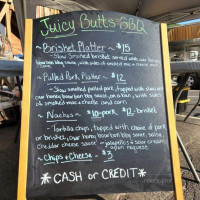 Juicy Butts BBQ
~ Brisket Platter ~ $15
~ Slow Smoked brisket served with our honey
bourbon bbq sauce, with sides of smoked mac n cheese and
~ Pulled Pork Platter ~ $12
- Slow smoked pulled pork, topped with slaw and
our honey bourbon bbq sauce, on a bun, with sides
of smoked mac n cheese and corn.
~ Nachos ~ $10-pork $12-brisket
- Tortilla chips, topped with choice of pork
or brisket, our honey bourbon bbq sauce, salsa,
cheddar cheese sauce - jalapeños + sour cream
upon request
~ Chips + Cheese ~ $3
*CASH or CREDIT*